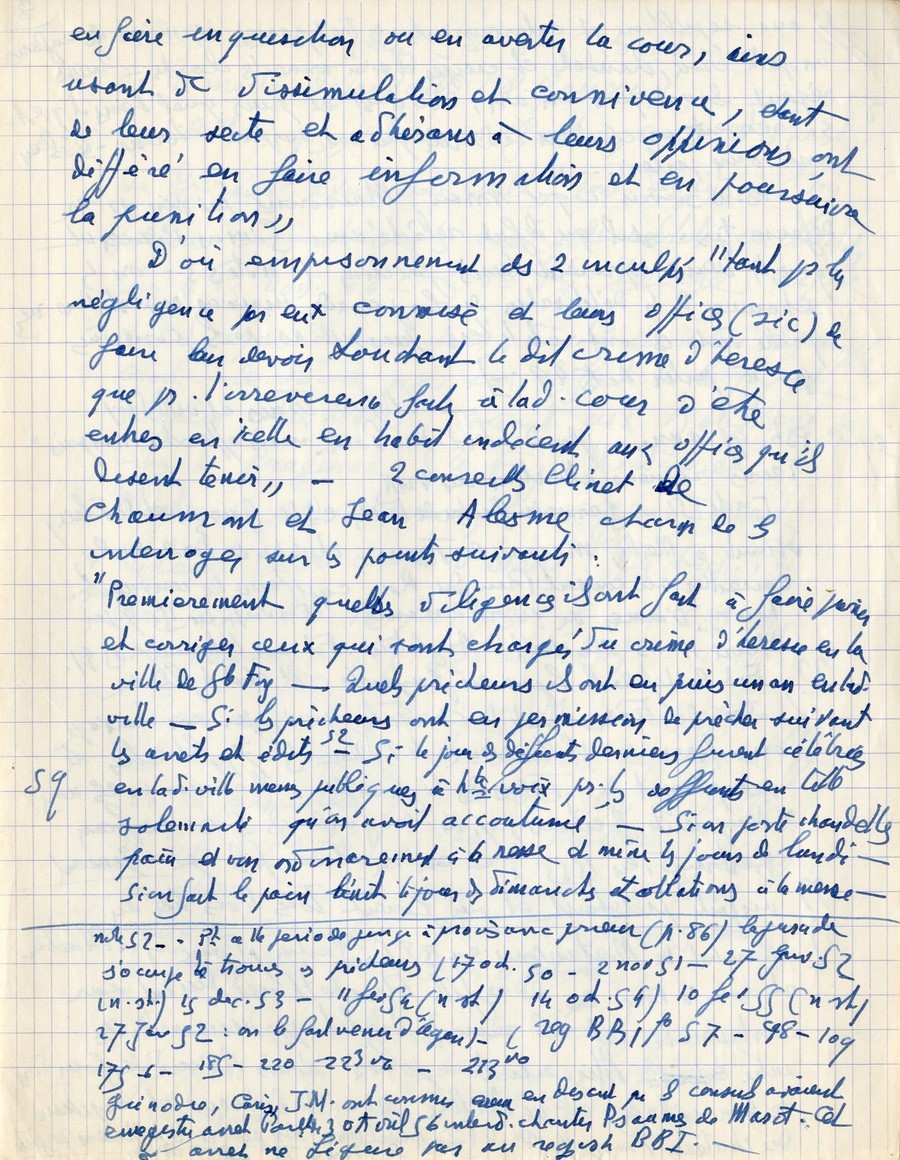 en faire inquesition ou en avertir la cour, ains
usant de dissimulation et connivence, étant
de leur secte et adhésans à leurs oppinions ont
différé en faire information et en poursuivre
la punition,,
D'où emprisonnement des 2 inculpés "tant p la
négligence pr eux commise et leurs offices (sic) de
faire leur devoir touchant le dit crime d'heresie
que pr. l'irreverence faite à lad. cour d'être
entrés en icelle en habit indécent aux offices qu'ils
disent tenir,, — 2 conseillers Clinet de
Chaumont et Jean Alesme chargés de les
interroger sur les points suivants :
"Premierement quelles diligences ils ont fait à faire punir
et corriger ceux qui sont chargés du crime d'heresie en la
ville de Ste Foy — Quels prêcheurs ils ont eu puis un an en lad.
ville — Si les prêcheurs ont eu permission de prêcher suivant
les arrets et édits 52 — Si le jour des deffunts derniers furent célébrées
59 en lad. ville messes publiques à hte voix pr. les deffunts en telle
solemnité qu'on avoit accoutumé — Si on porte chandelles
pain et vin ordinairement à la messe et même les jours de lundi —
Si on fait le pain bénit les jours de dimanches et oblations à la messe —
note 52 — . la période jurade (p. 86) la jurade
s'occupe de trouver des prêcheurs (17 oct. 50 - 2 nov 51 — 27 janv. 52
(n. st.) 15 dec. 53 — 11 fev 54 (n st) 14 oct. 54) 10 fe 55 (n st)
27 janv 52 : on le fait venir d'Agen) — (reg BB1 fo 57 - 98 - 109
175 - 185 - 220 223 vo — 213 vo
J.M. ont consuls avaient
enregistré arret 30 avril 56 interd. chanter Psaumes de Marot. Cet
arret ne figure pas au registre BB1. —